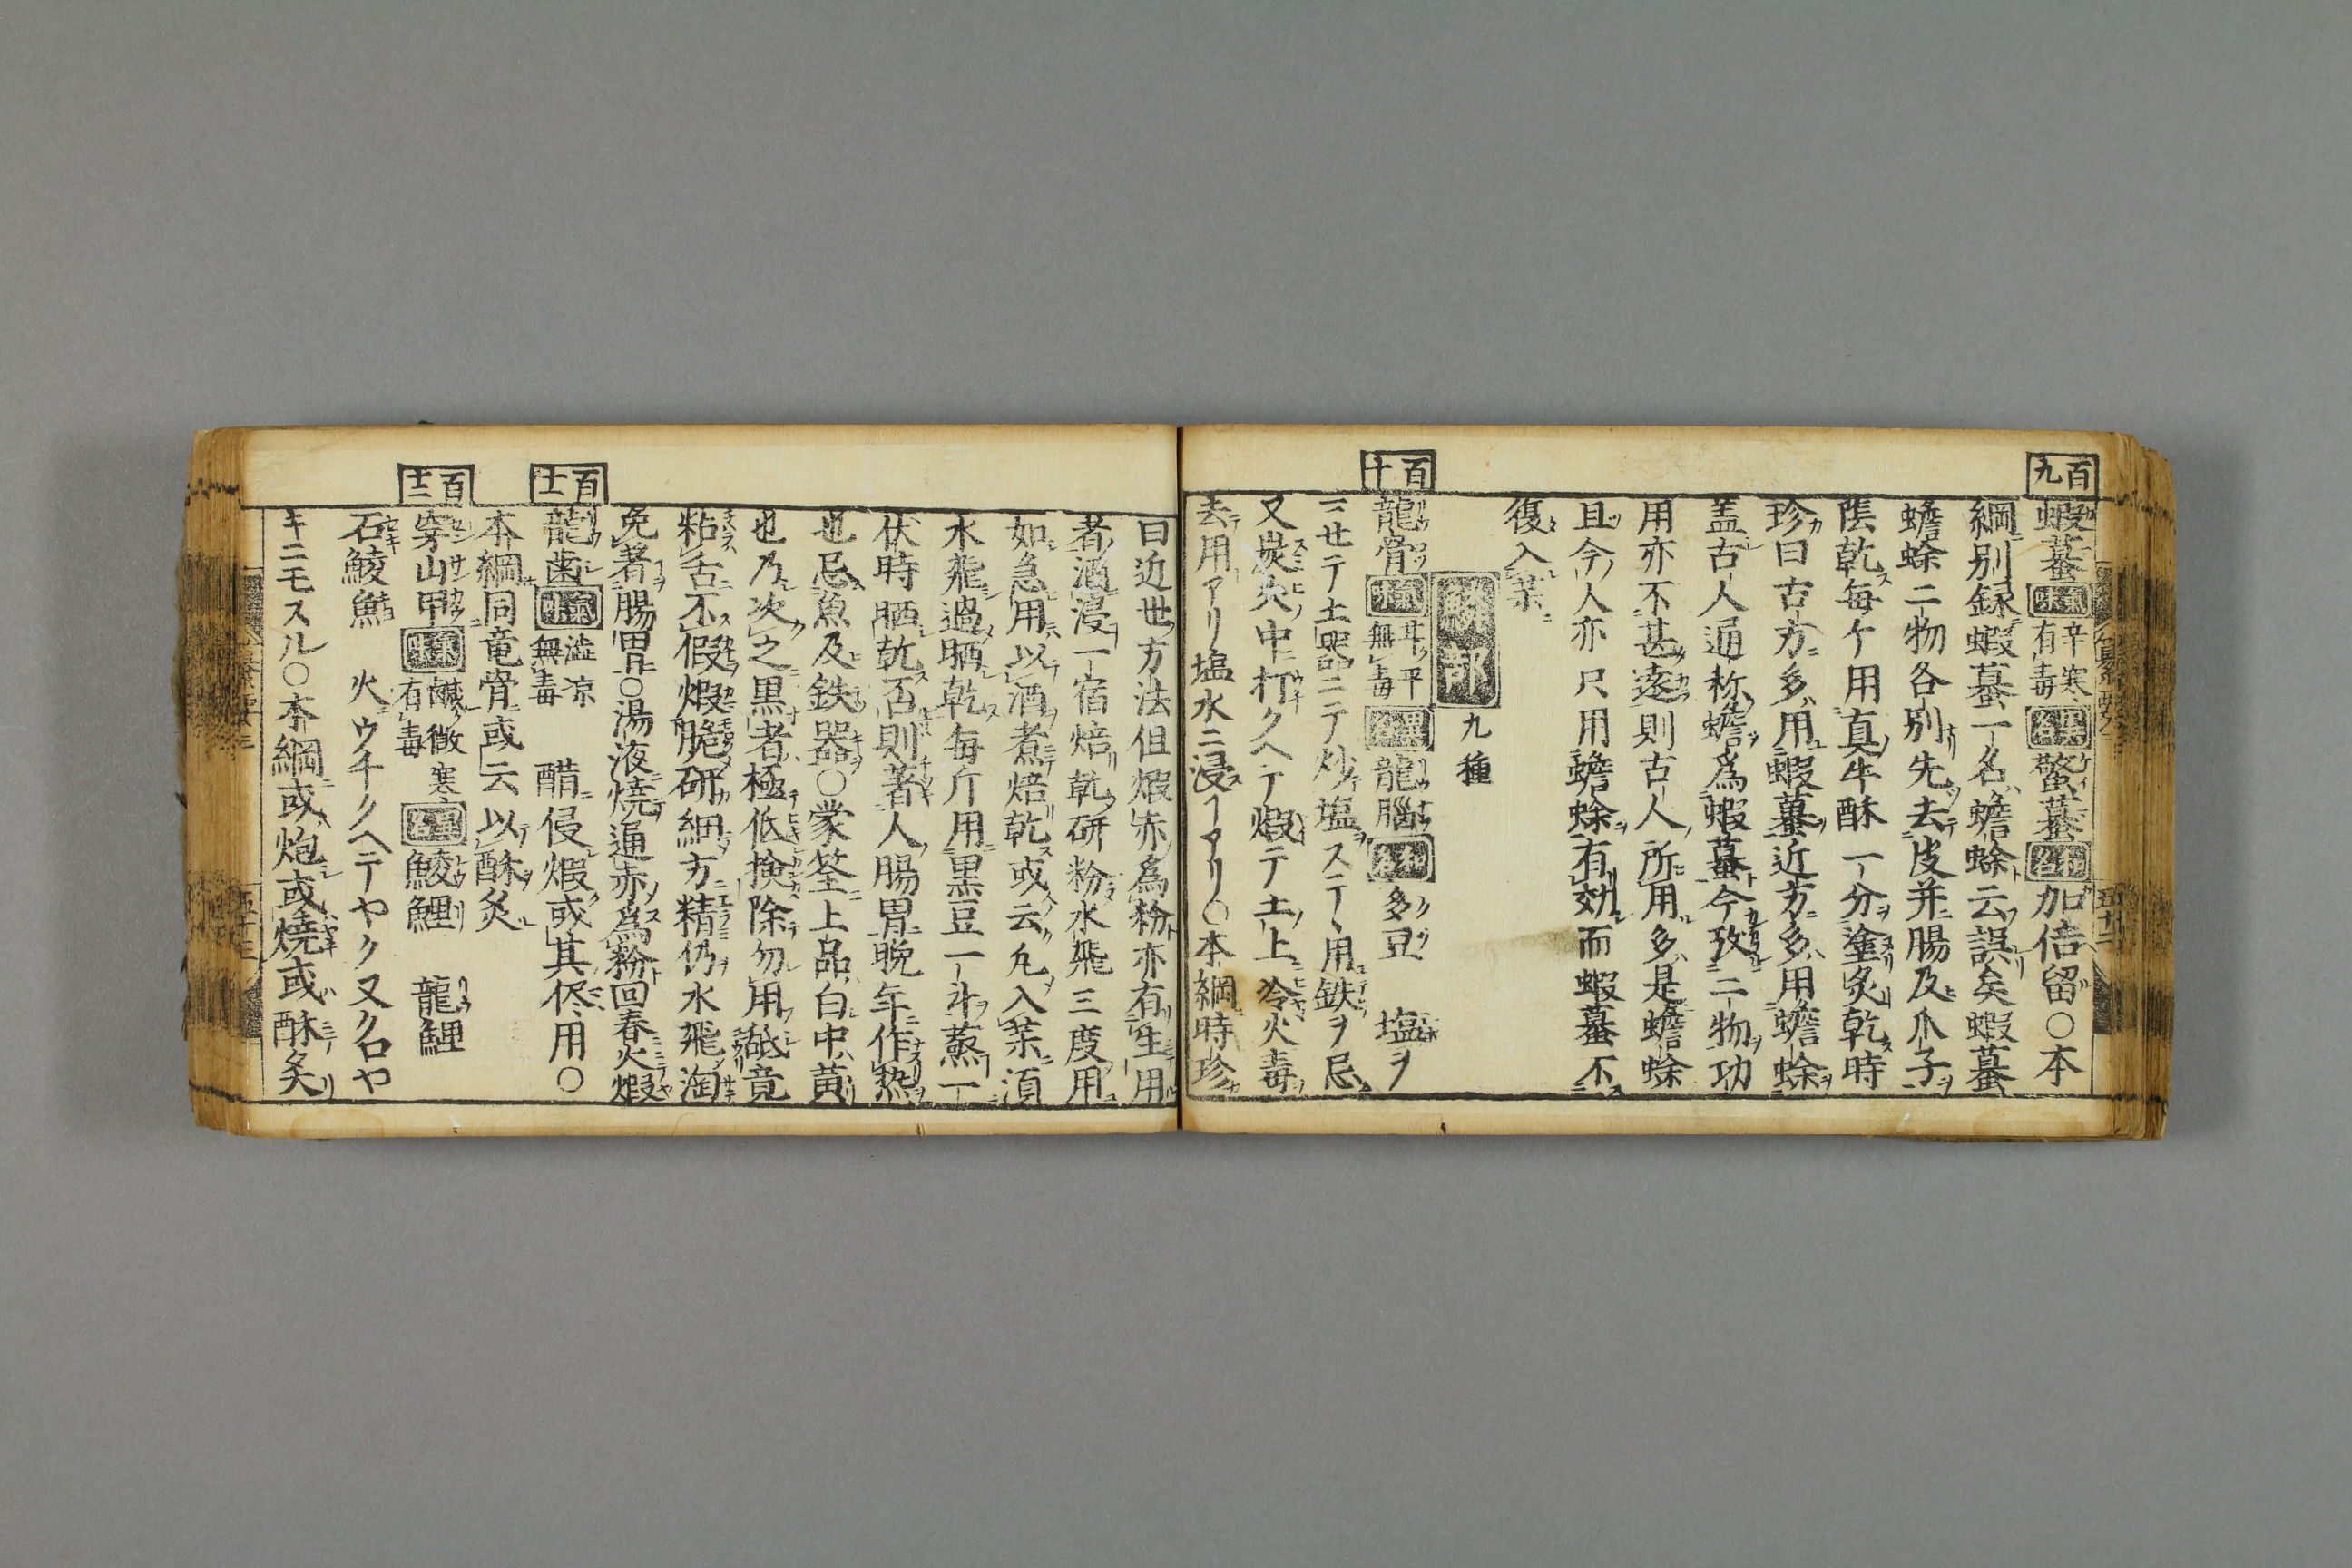 百九
蝦蟇 氣味 辛寒有毒 異名 螫蟇 和名 加倍留○本
綱別録蝦蟇一名蟾蜍云誤矣蝦蟇
蟾蜍二物各別先去皮并腸及爪子
陰乾毎ケ用真牛酥一分塗炙乾時
珍曰古方多用蝦蟇近方多用蟾蜍
盖古人通称蟾為蝦蟇今攷二物功
用亦不甚遠則古人所用多是蟾蜍
且今人亦只用蟾蜍有効而蝦蟇不
復入薬
鱗部 九種
百十
龍骨 氣味 甘平無毒 異名 龍腦 和名 多豆 塩ヲ
ミセテ土器ニテ炒塩ステヽ用鉄ヲ忌
又炭火中打クヘテ煆テ土上冷火毒
去用アリ塩水ニ浸ヿアリ○本綱時珍
曰近世方法但煆赤為粉亦有生用
者酒浸一宿焙乾研粉水飛三度用
如急用以酒煮焙乾或云凡入薬須
水飛過晒乾毎斤用黒豆一斗蒸一
伏時晒乾否則著人腸胃晩年作熱
也忌魚及鉄器○蒙筌上品白中黄
也乃次之黒者極低揀除勿用舐竟
粘舌不假煆脆研細方精仍水飛淘
免著腸胃○湯液焼通赤為粉回春火煆
百十一
龍歯 氣味 澁凉無毒 醋侵煆或其侭用○
本綱同竜骨或云以酥炙
百十二
穿山甲 氣味 鹹微寒有毒 異名 鯪鯉 龍鯉
石鯪魚 火ウチクヘテヤク又クロヤ
キニモスル○本綱或炮或焼或酥炙